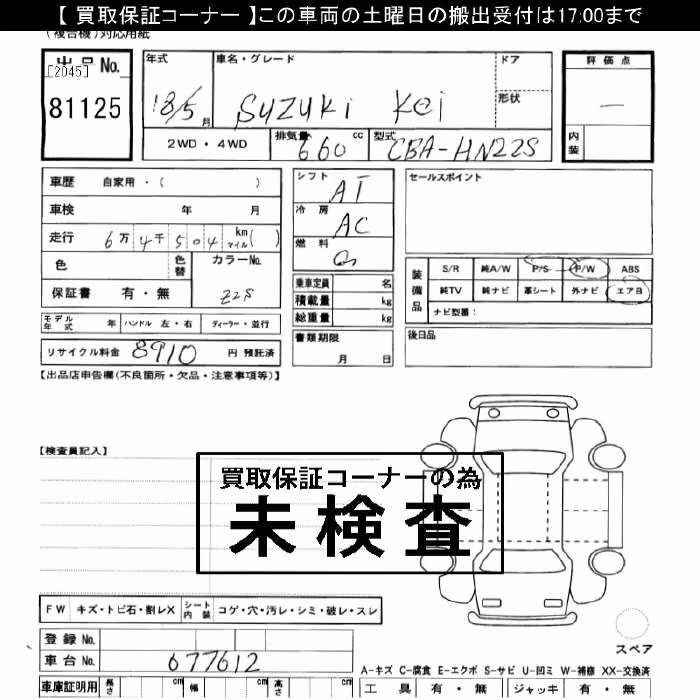 【 買取保証コーナー 】この車両の土曜日の搬出受付は17:00まで
(複合機)対応用紙
出品 No.
[2045]
81125
年式
18/5 月
車名・グレード
SUZUKI Kei
ドア
形状
評価点
—
内装
2WD・4WD
排気量 660 cc
型式 CBA-HN22S
車歴 自家用・( )
車検 年 月
走行 6万4千504 km マイル( )
色
色替
カラーNo.
Z2S
保証書 有・無
モデル年式 年 ハンドル 左・右 ディーラー・並行
リサイクル料金 8910 円 預託済
シフト
AT
冷房
AC
燃料
G
乗車定員 名
積載量 kg
総重量 kg
書類期限
月 日
セールスポイント
装備品
S/R 純A/W P/S P/W ABS
純TV 純ナビ 革シート 外ナビ エアB
ナビ型番:
後日品
【出品店申告欄(不良箇所・欠品・注意事項等)】
【検査員記入】
買取保証コーナーの為
未検査
FW キズ・トビ石・割レX シート内装 コゲ・穴・汚レ・シミ・破レ・スレ
登録 No.
車台 No. 677612
車庫証明用 長さ cm 幅 cm 高さ cm
スペア
A-キズ C-腐食 E-エクボ S-サビ U-凹ミ W-補修 XX-交換済
工具 有・無 ジャッキ 有・無